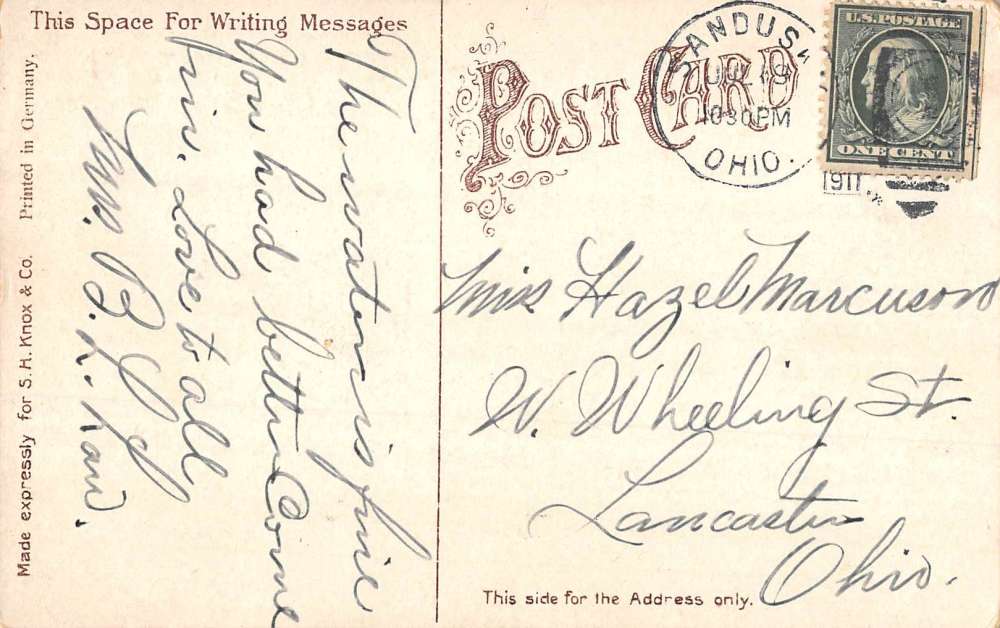 This Space For Writing Messages
The water is fine
You had better Come
in. Love to all
Mrs. B.
Made expressly for S. H. Knox & Co. Printed in Germany.
POST CARD
SANDUSK
10 30 PM
OHIO.
1911
U.S. POSTAGE
ONE CENT
Miss Hazel Marcuson
W. Wheeling St.
Lancaster
Ohio.
This side for the Address only.